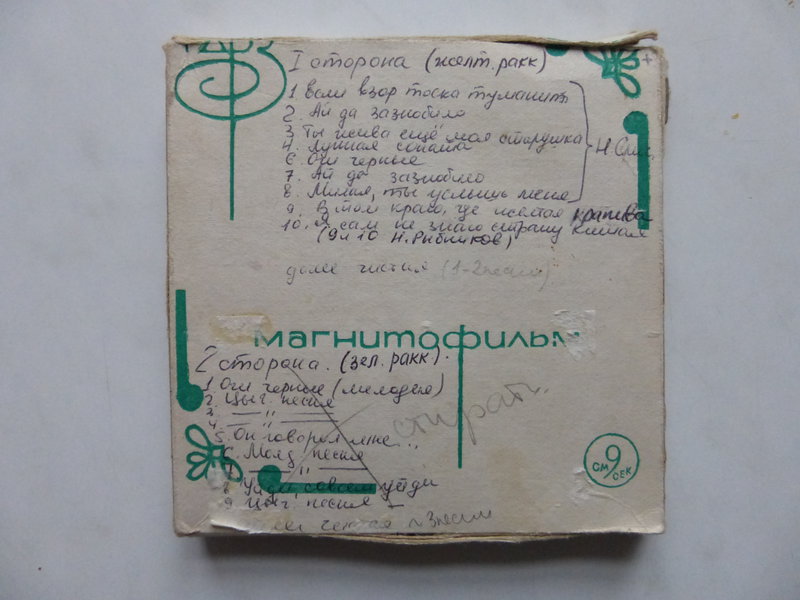 I сторона (желт. ракк)
1. Если взор тоска туманит
2. Ай да зазнобило
3. Ты жива ещё моя старушка
4. Лунная соната
6 Очи черные
7. Ай да зазнобило
8. Милая, ты услышь меня
Н. Слич.
9. В том краю, где желтая крапива
10. Я сам не знаю страну
(9 и 10 Н. Рыбников)
далее чистая (1-2 песни)
магнитофильм
2 сторона. (зел. ракк).
1 Очи черные (мелодия)
2. Цыг. песня
3. — " —
4. — " —
5. Он говорил мне..
6. Молд. песня
7 — " —
8 Уйди, совсем уйди
9 Цыг. песня
чистая 3 песни
стирать
9
см/сек